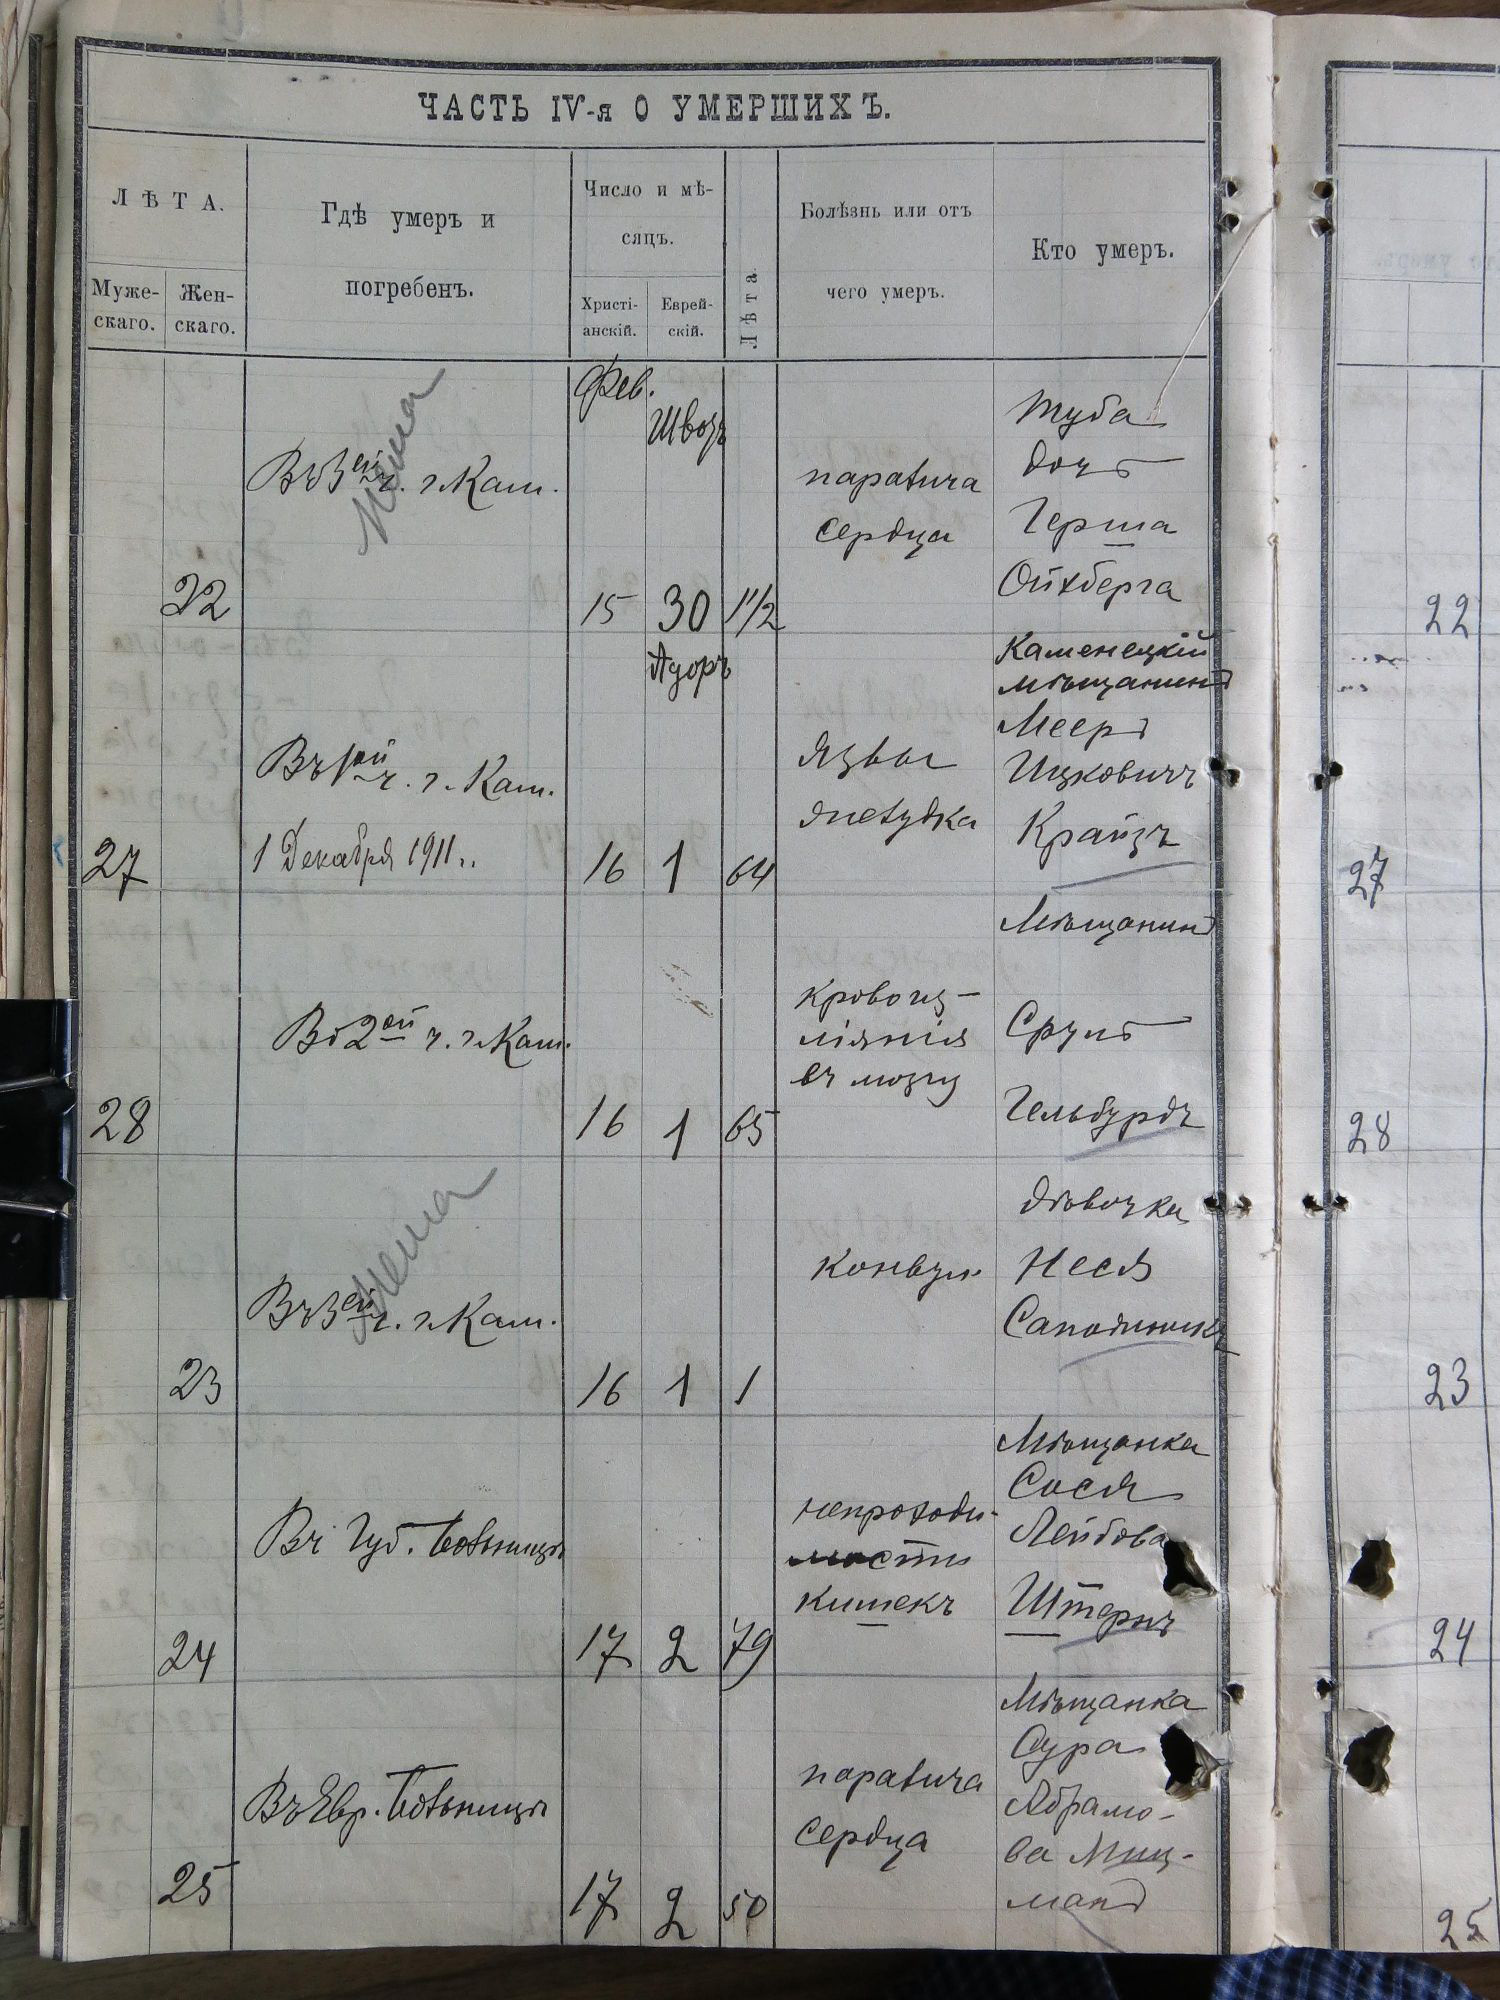 ЧАСТЬ IV-я О УМЕРШИХЪ.
ЛѢТА.
Муже-
скаго.
Жен-
скаго.
Гдѣ умеръ и
погребенъ.
Число и мѣ-
сяцъ.
Христі-
анскій.
Еврей-
скій.
Лѣта
Болѣзнь или отъ
чего умеръ.
Кто умеръ.
Фев.
Швозъ
22
Въ 3ей ч. г. Кам.
15
30
1 1/2
паралича
сердца
Туба
дочь
Герша
Ойхберга
22
Адоръ
27
Въ 1ой ч. г. Кам.
1 Декабря 1911 г.
16
1
64
Язвы
желудка
Каменецкій
мѣщанинъ
Мееръ
Ицковичъ
Крайзъ
27
28
Въ 2ой ч. г. Кам.
16
1
65
кровоиз-
ліянія
въ мозгу
Мѣщанинъ
Сруль
Гельбурдъ
28
23
Въ 3ей ч. г. Кам.
16
1
1
конвул.
дѣвочка
Неся
23
24
Въ Губ. больницѣ
17
2
79
непроходи-
мости
кишекъ
Мѣщанка
Сося
Лейбова
Штернъ
24
25
Въ Евр. больницѣ
17
2
50
паралича
сердца
Мѣщанка
Сура
Абрамо-
ва Миц-
манъ
25